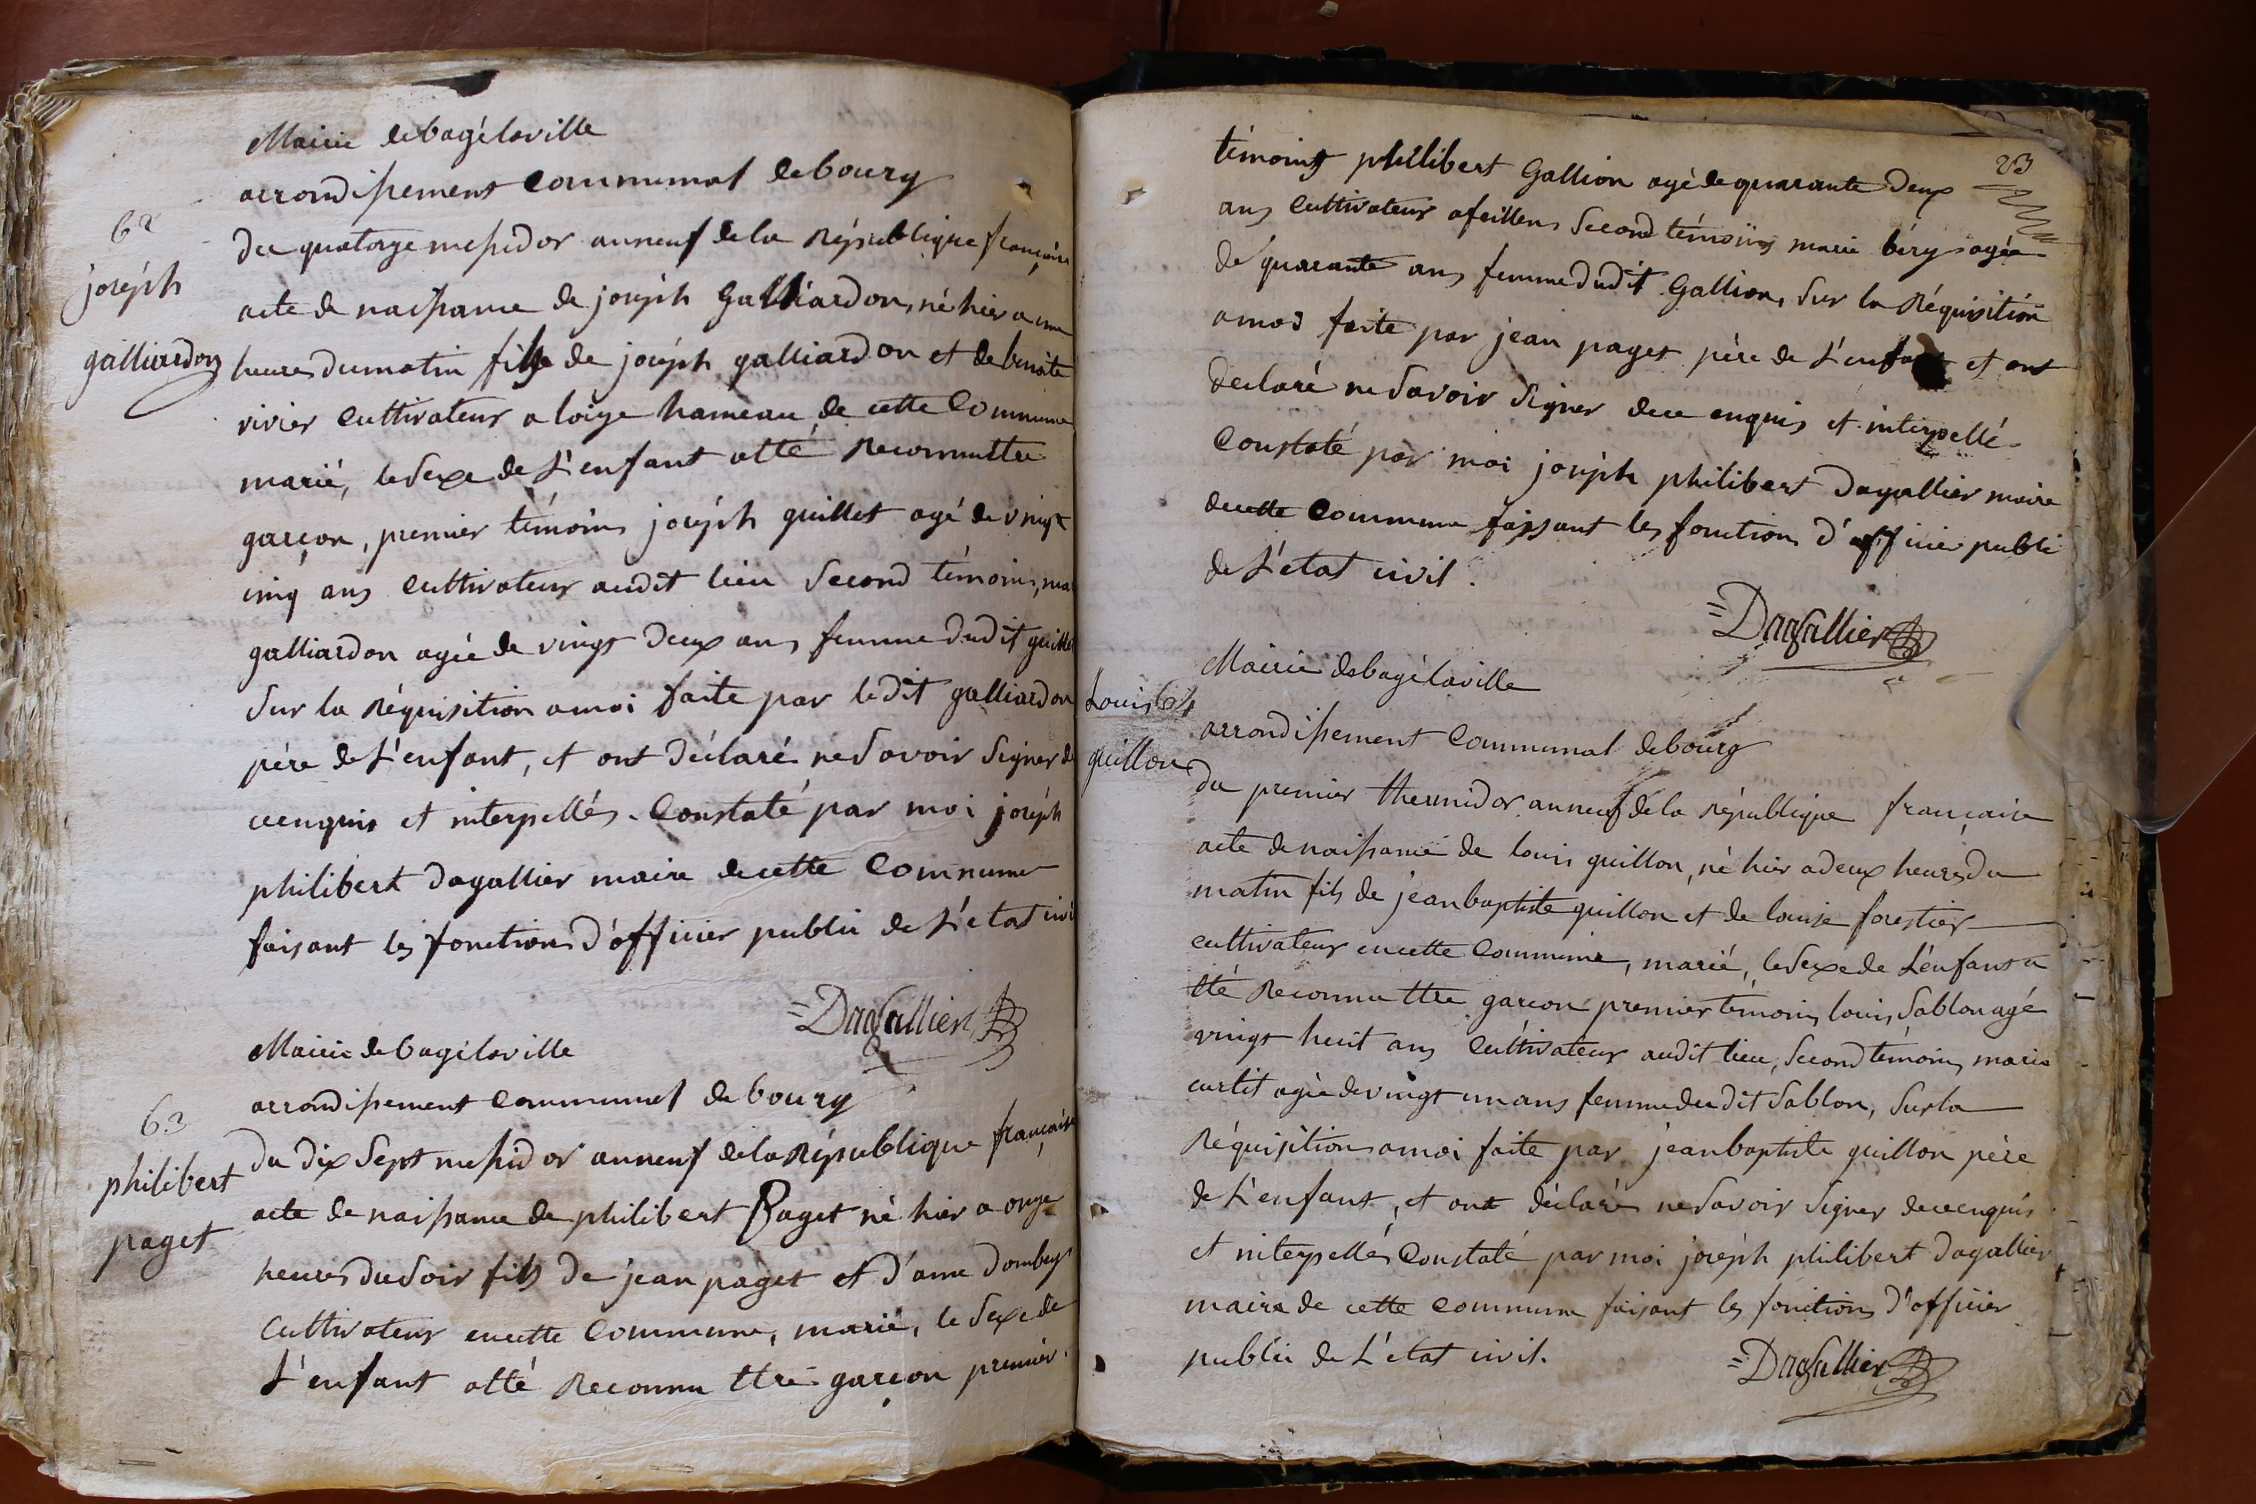 62
joséph
galliardon
Mairie de bagé laville
arrondissement communal de bourg
du quatorze messidor an neuf de la République française
acte de naissance de joséph Galliardon, né hier a une
heures du matin fils de joséph galliardon et de benoite
vivier cultivateur a loëze hameau de cette commune
marié, le Sexe de L'enfant a été Reconnu être
garçon, premier témoins joséph guillet agé de vingt
cinq ans cultivateur audit lieu Second témoins, ma
galliardon agée de vingt deux ans femme dudit guillet
Sur la Réquisition a moi faite par ledit galliardon
père de L'enfant, et ont déclaré ne Savoir Signer de
ce enquis et interpellés. Constaté par moi joséph
philibert dagallier maire de cette Commune
faisant les fonctions d'officier public de L'etat civi
=Dagallier
63
philibert
paget
Mairie de bagé laville
arrondissement communal de bourg
Du dix Sept messidor an neuf de la République française
acte de naissance de philibert Paget né hier a onze
heures du Soir fils de jean paget et d'anne dombey
cultivateur en cette Commune, marié, le Sexe de
L'enfant a été Reconnu être garçon premier
23
témoins philibert Gallion agé de quarante deux
ans cultivateur a feillens Second témoins marie béry agée
de quarante ans femme dudit Gallion, Sur la Réquisition
a moi faite par jean paget père de L'enfant et ont
declaré ne Savoir Signer de ce enquis et interpellé
Constaté par moi joséph philibert dagallier maire
de cette Commune faisant les fonctions d'officier publi
de L'état civil.
=Dagallier
Louis 64
guillon
Mairie de bagé laville
arrondissement Communal de bourg
du premier thermidor an neuf de la République française
acte de naissance de louis guillon, né hier a deux heures du
matin fils de jean baptiste guillon et de louise forestier
cultivateur en cette Commune, marié, le Sexe de L'enfant a
été Reconnu être garcon premier témoins louis Sablon agé
vingt huit ans Cultivateur audit lieu, Second témoins marie
curtit agée de vingt un ans femme dudit Sablon, Sur la
Réquisition a moi faite par jean baptiste guillon père
de L'enfant, et ont déclaré ne Savoir Signer de ce enquis
et interpellés Constaté par moi joséph philibert dagallier
maire de cette commune faisant les fonctions d'officier
public de L'etat civil.
=Dagallier